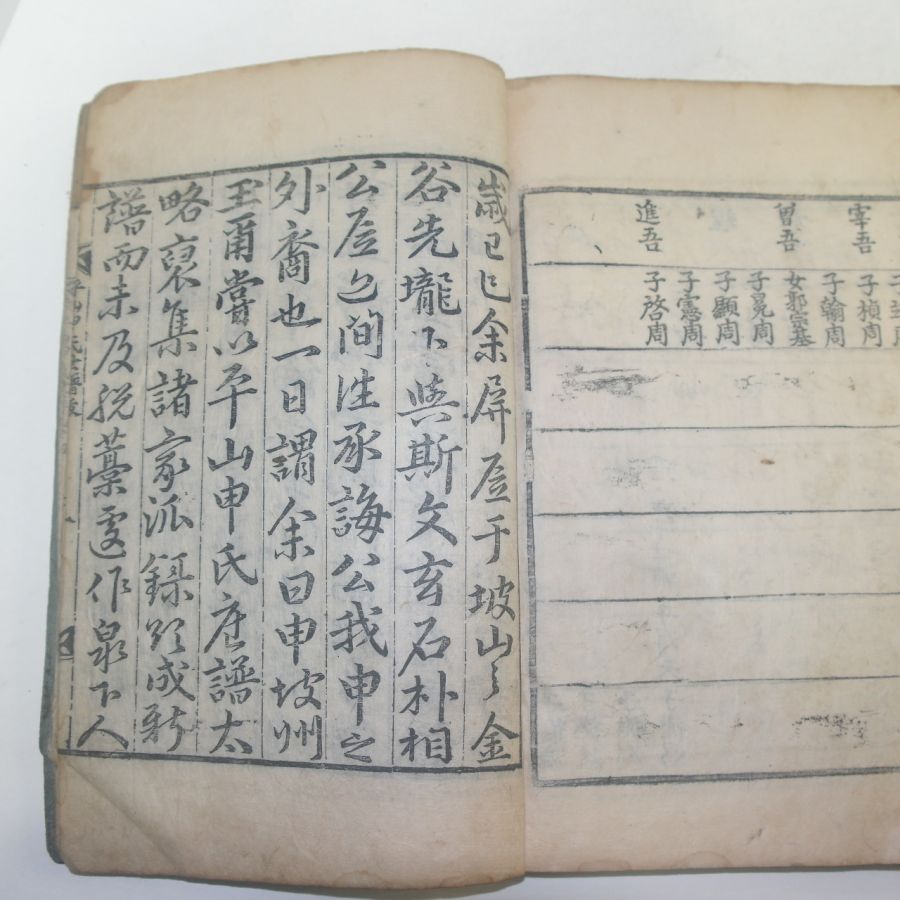 宰吾
曾吾
進吾
子楨周
子翰周
子晃周
子顯周
子憲周
子啓周
歲己巳余屏居于坡山之金
谷先壠下與斯文玄石朴相
公居間往承誨公我申之
外裔也一日謂余曰申坡州
玉爾嘗以平山申氏譜太
略裒集諸家派錄欲成新
譜而未及脫藁遽作泉下人